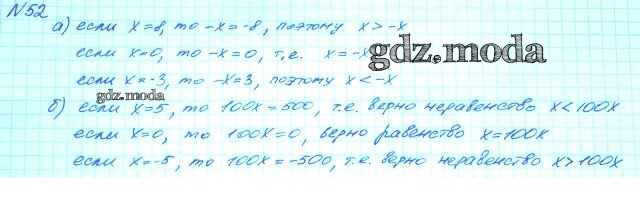 №52
а) если x=8, то -x=-8, поэтому x > -x
если x=0, то -x=0, т.е. x = -x
gdz.moda
если x=-3, то -x=3, поэтому x < -x
gdz.moda
б) если x=5, то 100x=500, т.е. верно неравенство x < 100x
если x=0, то 100x=0, верно равенство x=100x
если x=-5, то 100x=-500, т.е. верно неравенство x > 100x